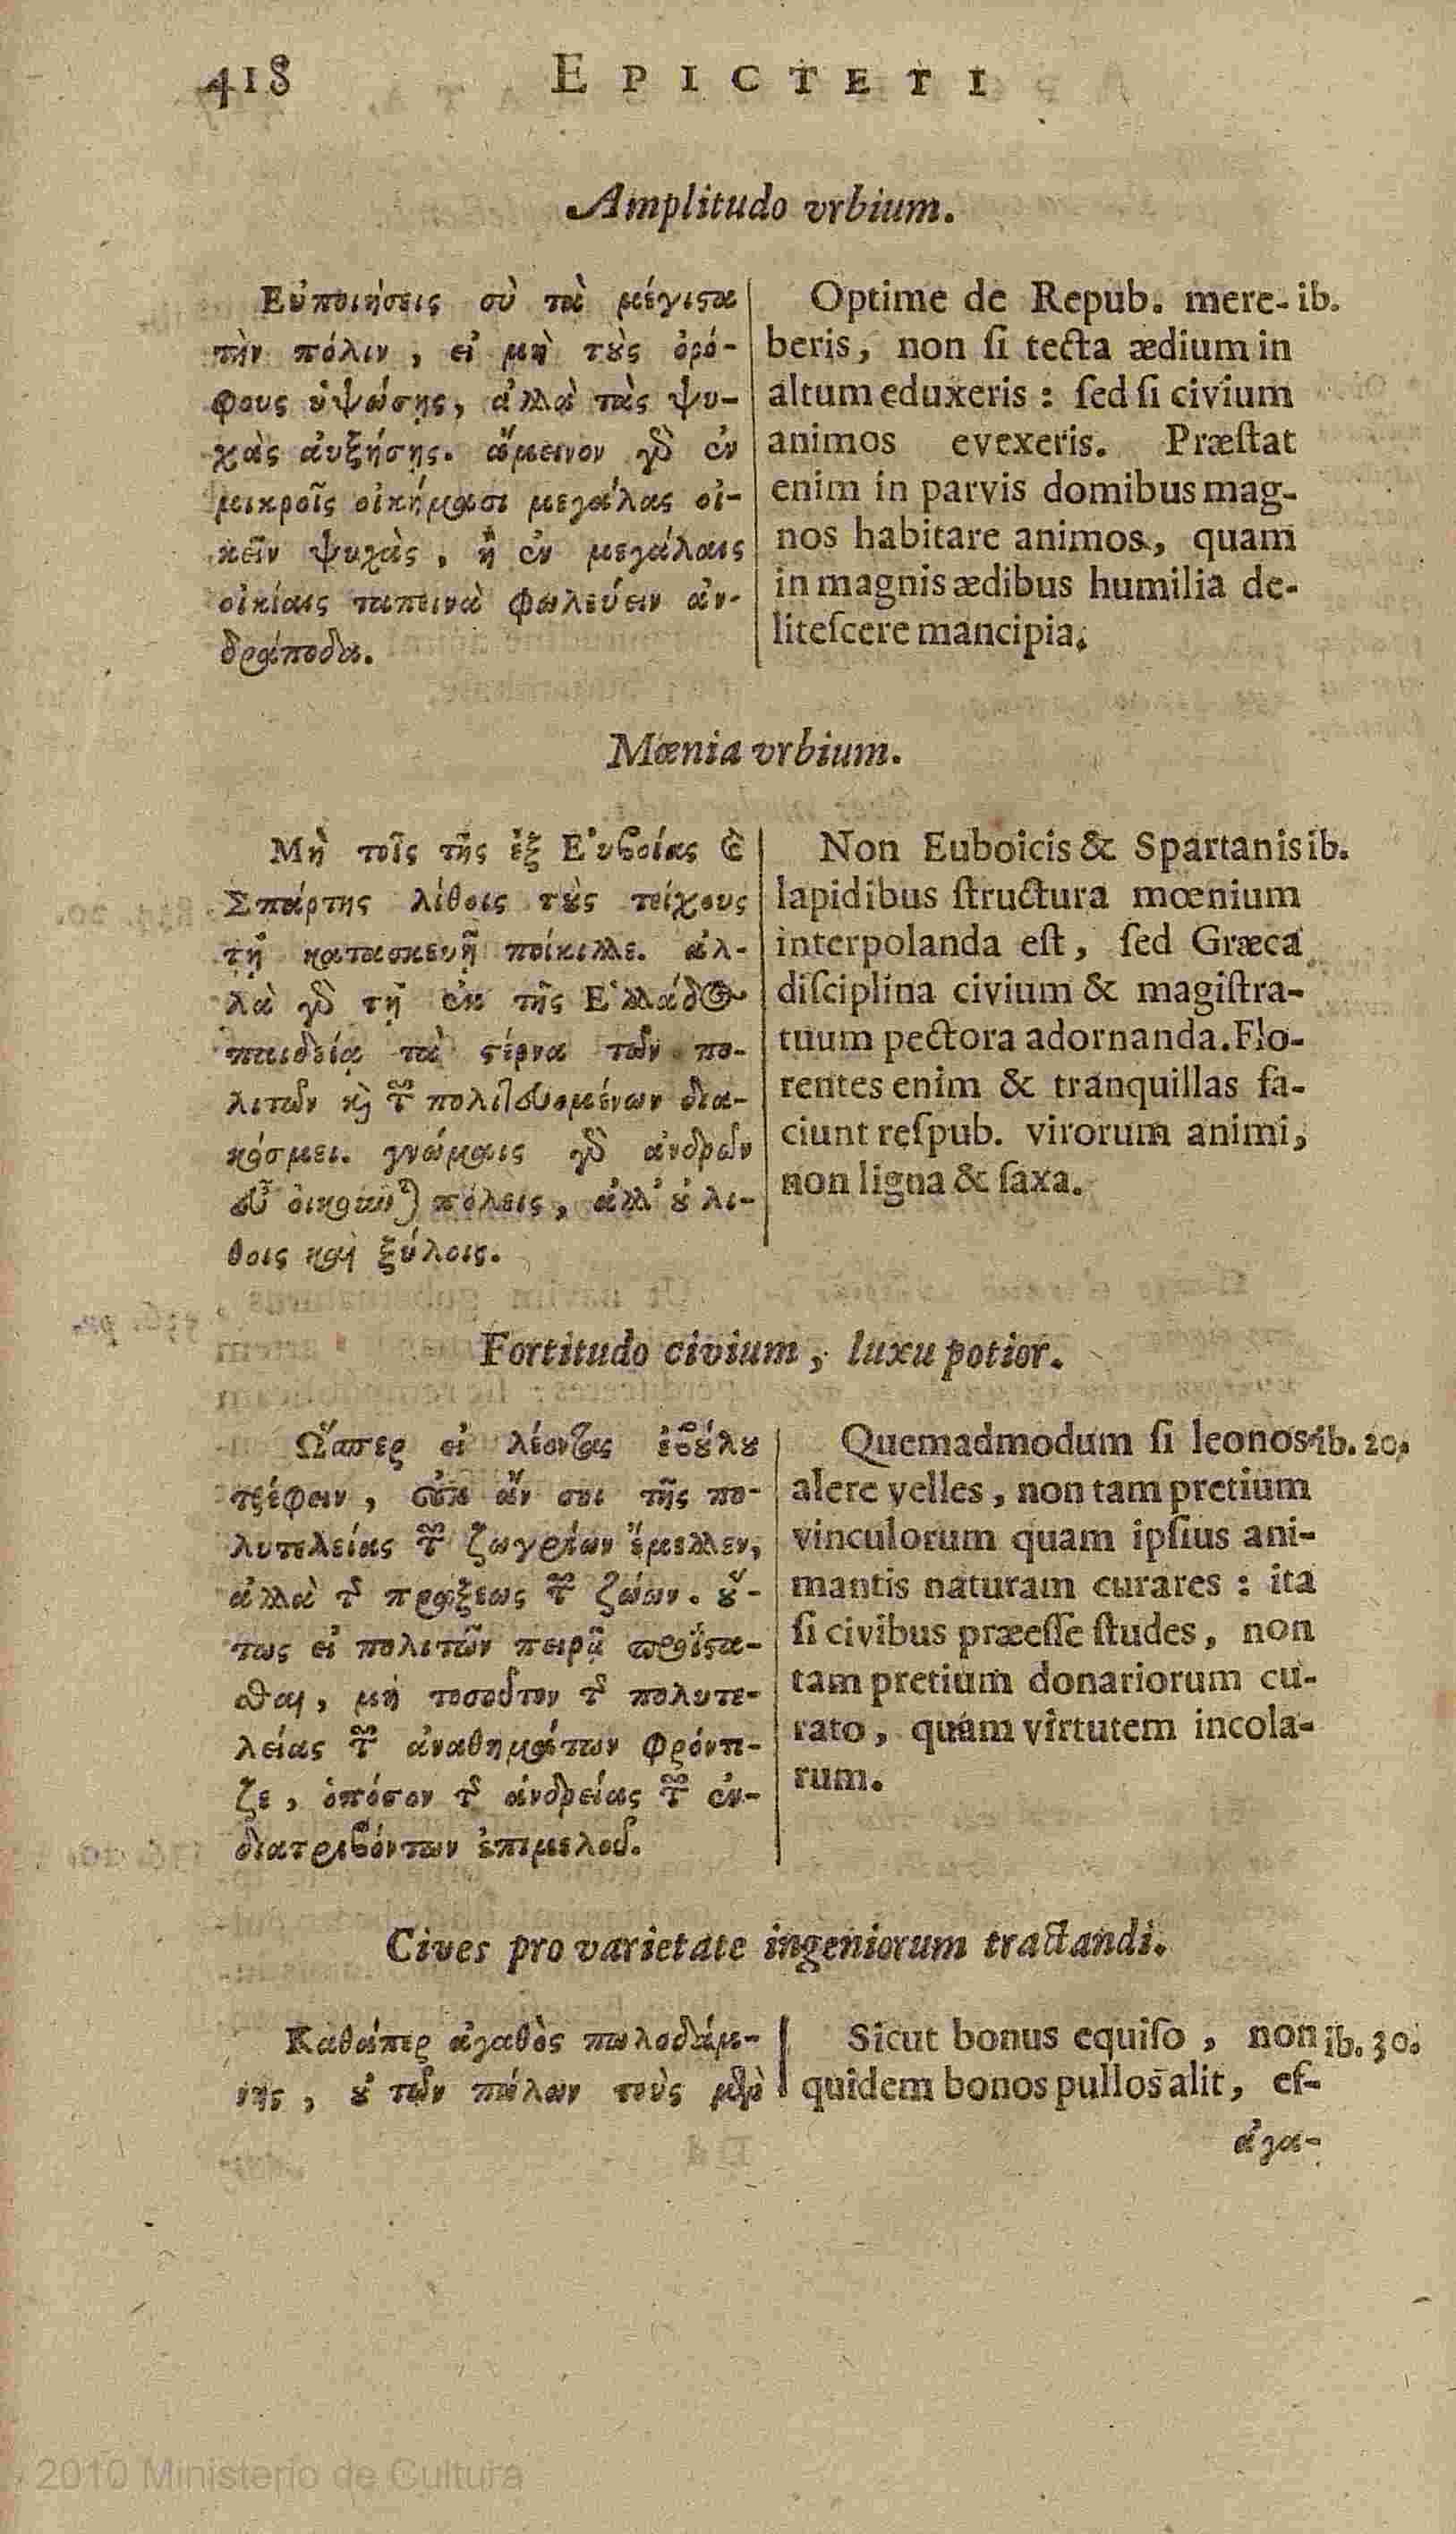 418 EPICTETI
Amplitudo vrbium.
Εὐποιήσεις σὺ τὰ μέγιστα
τὴν πόλιν, εἰ μὴ τοὺς ὀρό-
φους ὑψώσῃς, ἀλλὰ τὰς ψυ-
χὰς αὐξήσῃς. ἄμεινον γὸ ἐν
μικροῖς οἰκήμασι μεγάλας οἰ-
κεῖν ψυχὰς, ἢ ἐν μεγάλαις
οἰκίαις ταπεινὰ φωλεύειν ἀν-
δράποδα.
Optime de Repub. mere- ib.
beris, non ſi tecta ædium in
altum eduxeris : ſed ſi civium
animos evexeris. Præſtat
enim in parvis domibus mag-
nos habitare animos, quam
in magnis ædibus humilia de-
liteſcere mancipia.
Mœnia vrbium.
Μὴ τοῖς τῆς ἐξ Εὐβοίας &
Σπάρτης λίθοις τοὺς τοίχους
τῇ κατασκευῇ ποίκιλλε. ἀλ-
λὰ γὸ τῇ ἐκ τῆς Ἑλλάδος
παιδείᾳ τὰ στέρνα τῶν πο-
λιτῶν καὶ τῶν πολιτευομένων δια-
κόσμει. γνώμαις γὸ ἀνδρῶν
εὖ οἰκοῦνται πόλεις, ἀλλ' οὐ λί-
θοις καὶ ξύλοις.
Non Euboicis & Spartanis ib.
lapidibus ſtructura mœnium
interpolanda eſt, ſed Græca
diſciplina civium & magiſtra-
tuum pectora adornanda. Flo-
rentes enim & tranquillas fa-
ciunt reſpub. virorum animi,
non ligna & ſaxa.
Fortitudo civium, luxu potior.
Ὥσπερ εἰ λέοντας ἐβούλου
τρέφειν, οὐκ ἄν σοι τῆς πο-
λυτελείας τῶν ζωγρίων ἔμελλεν,
ἀλλὰ τῆς πράξεως τῶν ζώων. οὕ-
τως εἰ πολιτῶν πειρᾷ προΐστα-
σθαι, μὴ τοσοῦτον τῆς πολυτε-
λείας τῶν ἀναθημάτων φρόντι-
ζε, ὁπόσον τῆς ἀνδρείας τῶν ἐν-
διατριβόντων ἐπιμελοῦ.
Quemadmodum ſi leonos ib. 20.
alere velles, non tam pretium
vinculorum quam ipſius ani-
mantis naturam curares : ita
ſi civibus præeſſe ſtudes, non
tam pretium donariorum cu-
rato, quam virtutem incola-
rum.
Cives pro varietate ingeniorum tractandi.
Καθάπερ ἀγαθὸς πωλοδάμ-
νης, οὐ τῶν πώλων τοὺς μὲν
Sicut bonus equiſo, non ib. 30.
quidem bonos pullos alit, ef-
ἀγα-
2010 Ministerio de Cultura